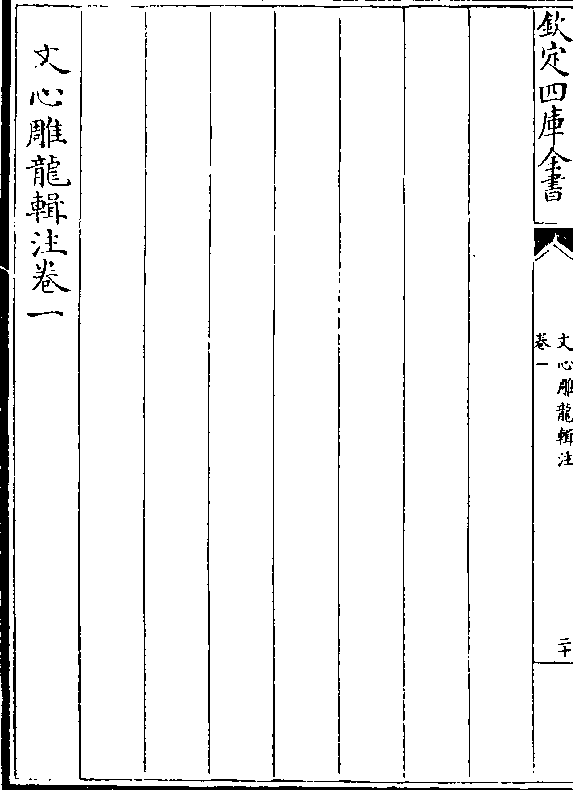 欽定四庫全書
文心雕龍輯注
卷一
二十
文心雕龍輯注卷一